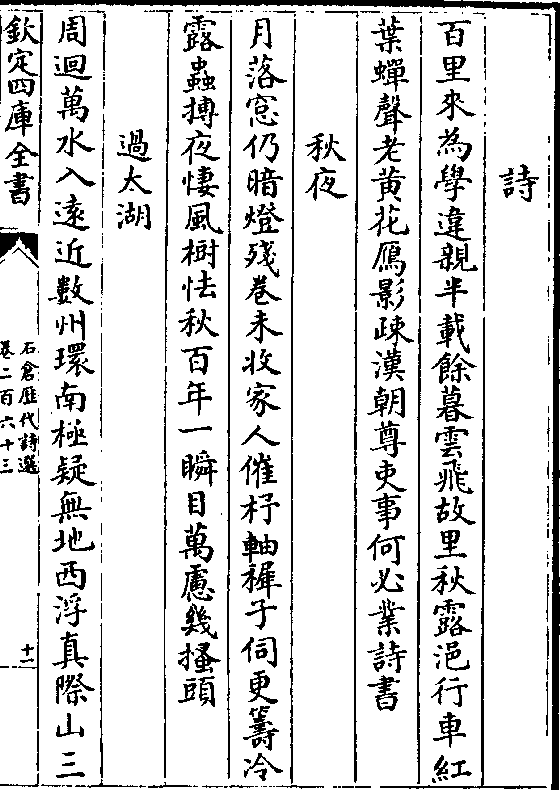 詩
百里來為學違親半載餘暮雲飛故里秋露浥行車紅
葉蟬聲老黄花鴈影疎漢朝尊吏事何必業詩書
秋夜
月落窓仍暗燈殘卷未收家人催杼軸穉子伺更籌冷
露蟲摶夜悽風樹怯秋百年一瞬目萬慮幾搔頭
過太湖
周迴萬水入遠近數州環南極疑無地西浮真際山三
欽定四庫全書
石倉歴代詩選
卷二百六十三
十一